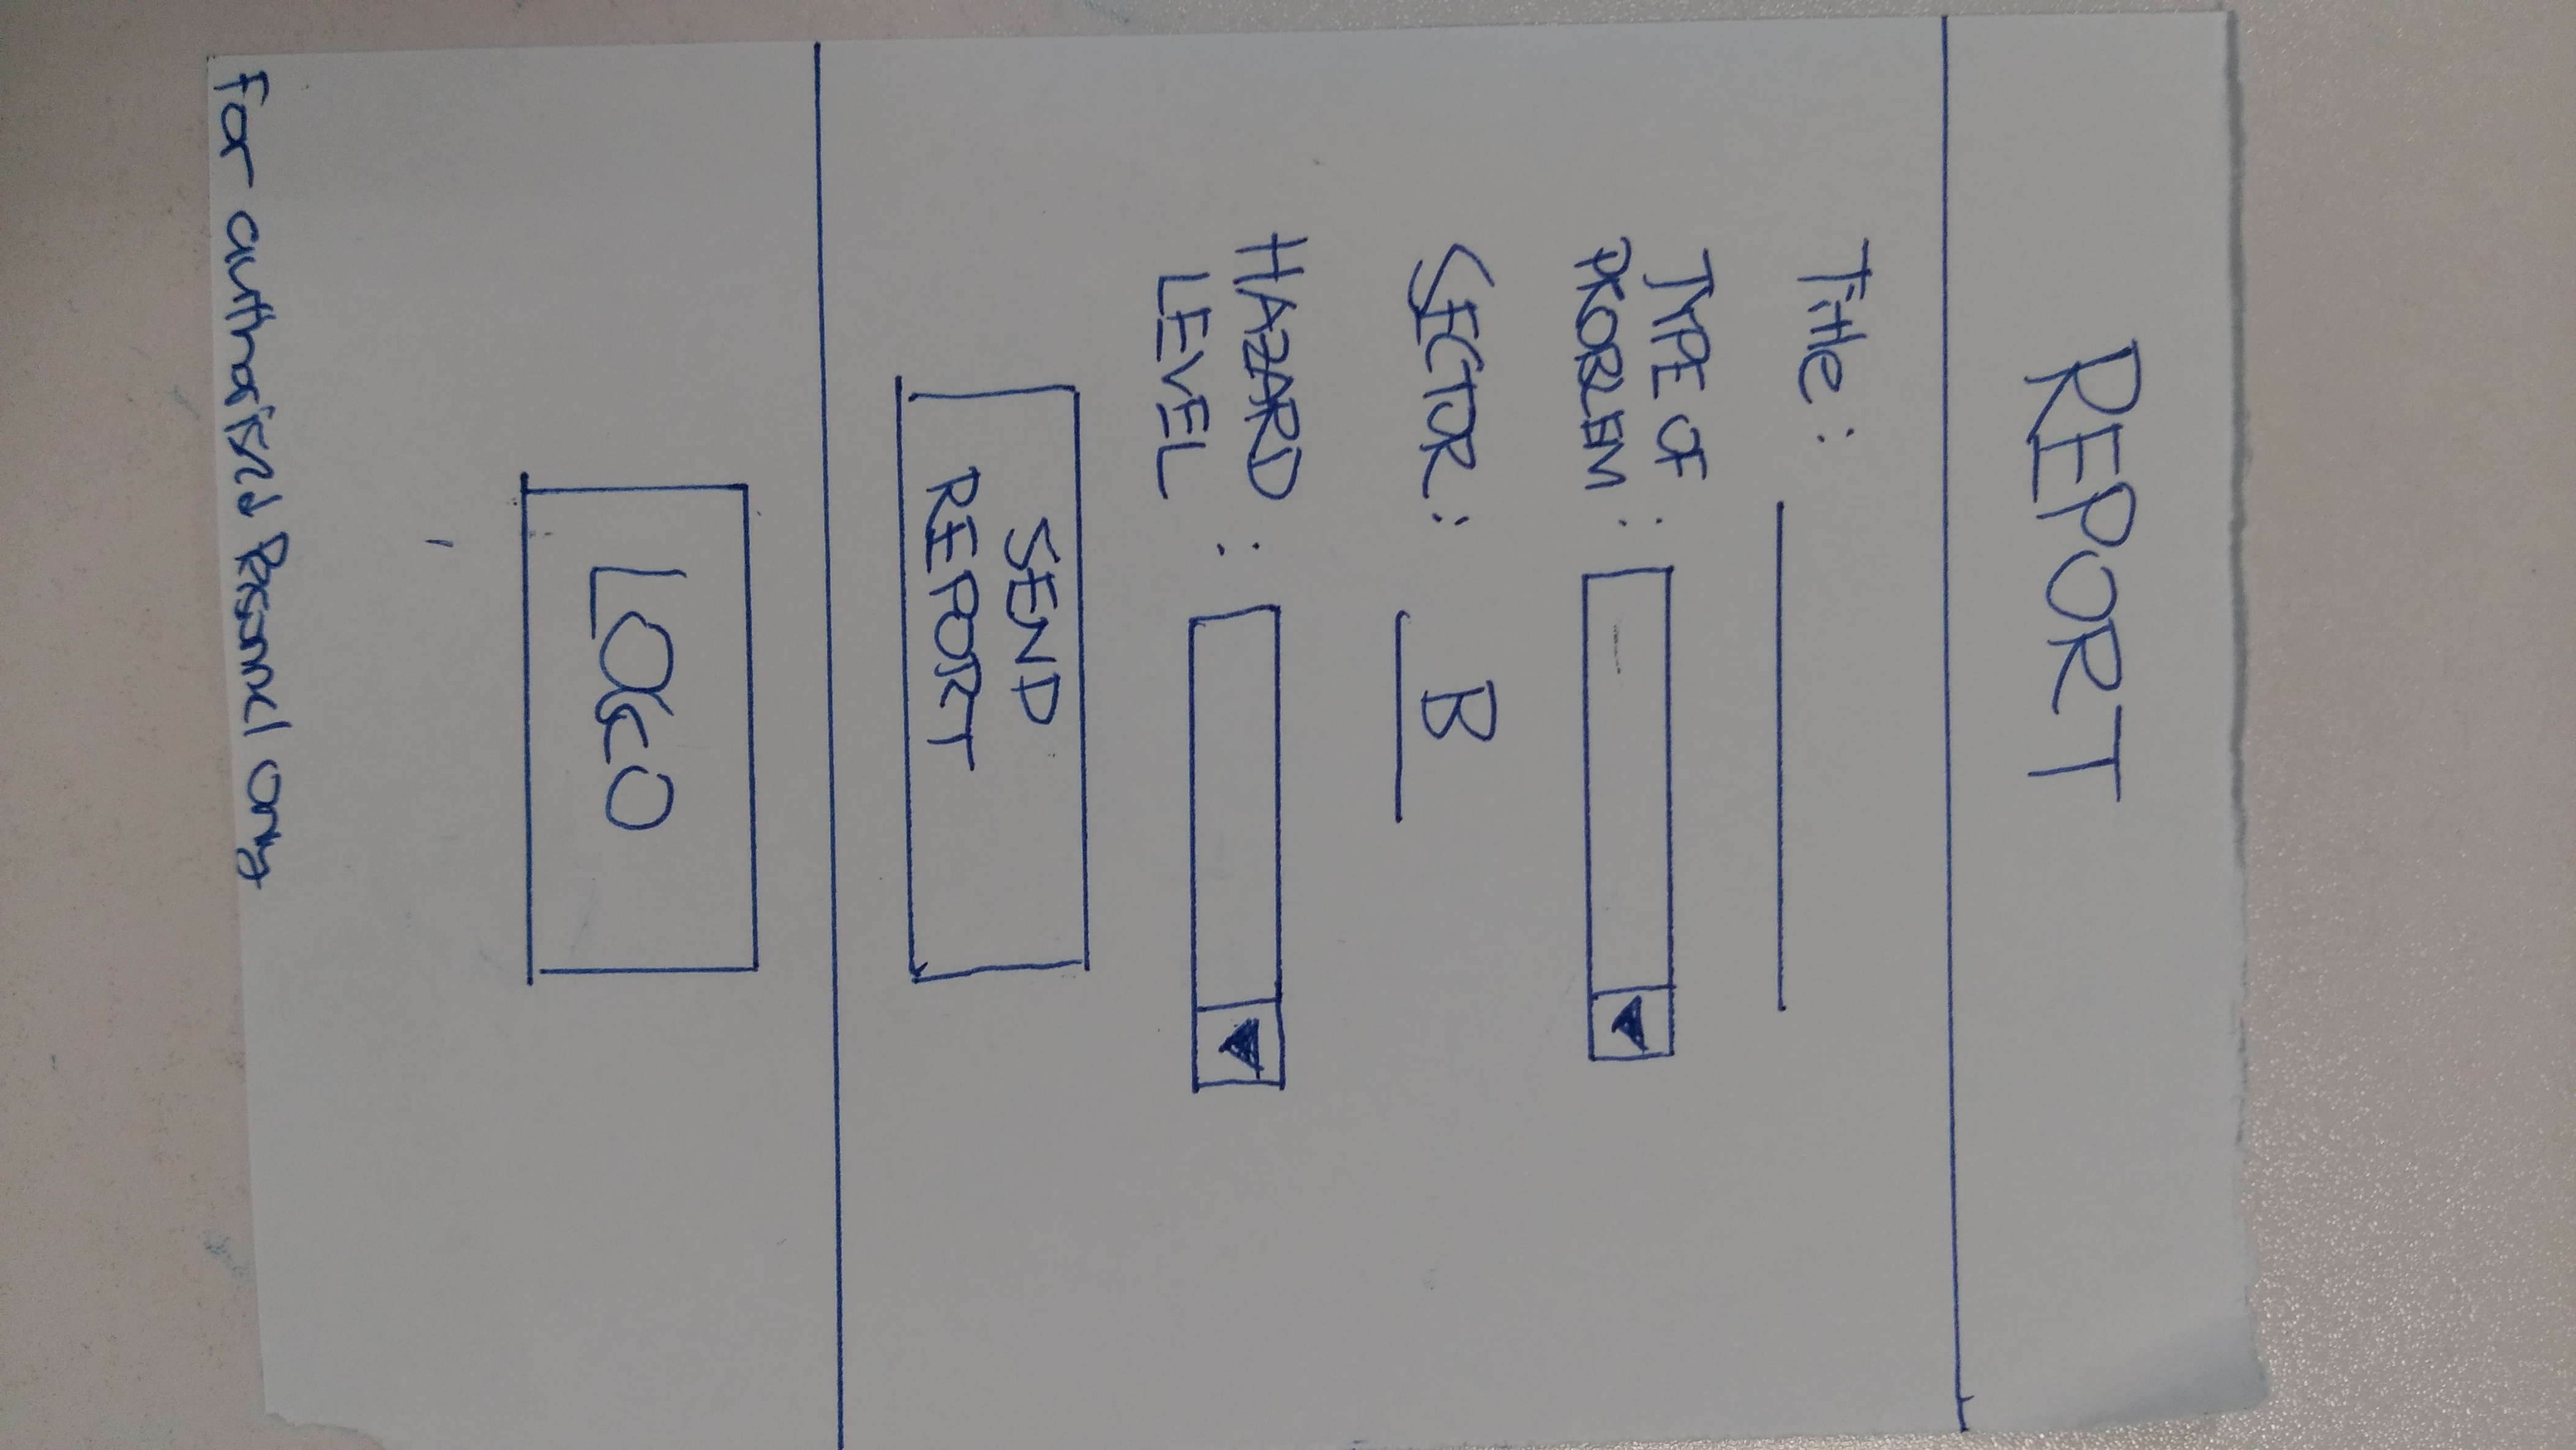 REPORT
Title:
TYPE OF
PROBLEM:
SECTOR: B
HAZARD
LEVEL :
SEND
REPORT
LOGO
For authorised Personnel only